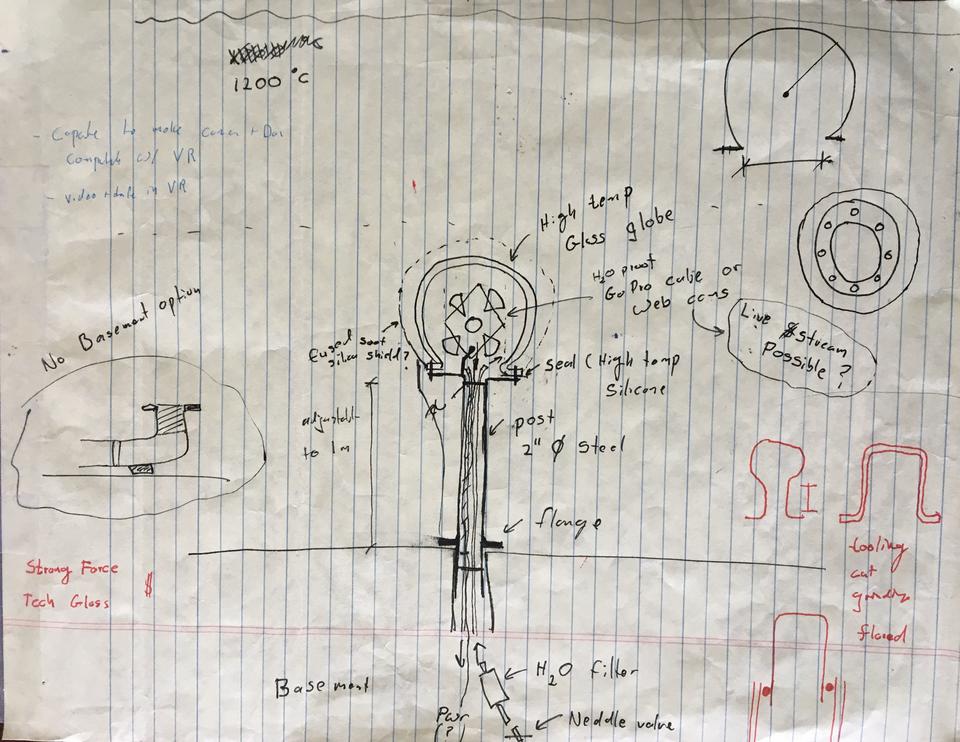 1200 °C
to make
w/ VR
- video + data in VR
High temp
Glass globe
H₂O proof
GoPro cube or
Web cams
Live $ stream
Possible ?
No Basement option
silica shield?
seal (High temp
Silicone
adjustable
to 1m
post
2" Ø Steel
flange
Strong Force $
Tech Glass
tooling
cut
flared
Basement
H₂O filter
Pwr
(?)
Neddle valve